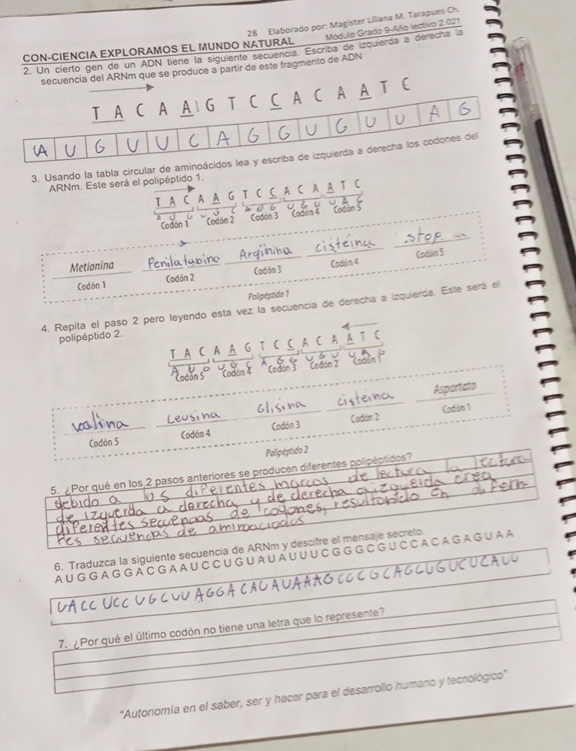 28 Elaborado por: Magister Liliana M. Tarapues Ch.
CON-CIENCIA EXPLORAMOS EL MUNDO NATURAL Módulo Grado 9-Año lectivo 2.021
2. Un cierto gen de un ADN tiene la siguiente secuencia. Escriba de izquierda a derecha la
secuencia del ARNm que se produce a partir de este fragmento de ADN
T A C A A G T C C A C A A T C
A U G U U C A G G U G U U A G
3. Usando la tabla circular de aminoácidos lea y escriba de izquierda a derecha los codones del
ARNm. Este será el polipéptido 1.
T A C A A G T C C A C A A T C
A U G U U C A G G U G U U A G
Codón 1 Codón 2 Codón 3 Codón 4 Codón 5
Metionina Arginina cisteina stop
Codón 1 Codón 2 Codón 3 Codón 4 Codón 5
Polipéptido 1
4. Repita el paso 2 pero leyendo esta vez la secuencia de derecha a izquierda. Este será el
polipéptido 2.
T A C A A G T C C A C A A T C
Codón 5 Codón 4 Codón 3 Codón 2 Codón 1
valina Leusina Glisina cisteina Aspartato
Codón 5 Codón 4 Codón 3 Codón 2 Codón 1
Polipéptido 2
5. ¿Por qué en los 2 pasos anteriores se producen diferentes polipéptidos?
debido a los diferentes marcos de lectura la lectura
de izquerda a derecha y de derecha a izqueida crea
diferentes secuencias de codones, resultando en diferen
tes secuencias de aminoacidos
6. Traduzca la siguiente secuencia de ARNm y descifre el mensaje secreto.
A U G G A G G A C G A A U C C U G U A U A U U U C G G G C G U C C A C A G A G U A A
7. ¿Por qué el último codón no tiene una letra que lo represente?
"Autonomía en el saber, ser y hacer para el desarrollo humano y tecnológico"